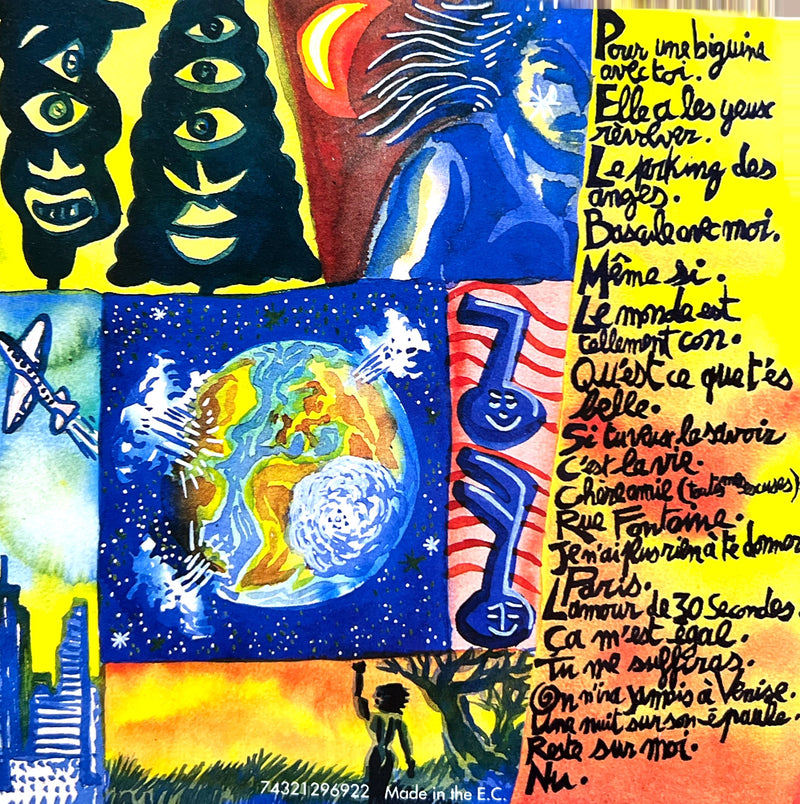 Pour une biguine
avec toi.
Elle a les yeux
révolver.
Le parking des
anges.
Bascule avec moi.
Même si.
Le monde est
tellement con.
Qu'est ce que t'es
belle.
Si tu veux le savoir
C'est la vie.
Chère amie (toutes mes excuses)
Rue Fontaine.
Je n'ai plus rien à te donner
Paris.
L'amour de 30 Secondes.
Ça m'est égal.
Tu me suffiras.
On n'ira jamais à Venise.
Une nuit sur son épaule.
Reste sur moi.
Nu.
74321296922 Made in the E.C.